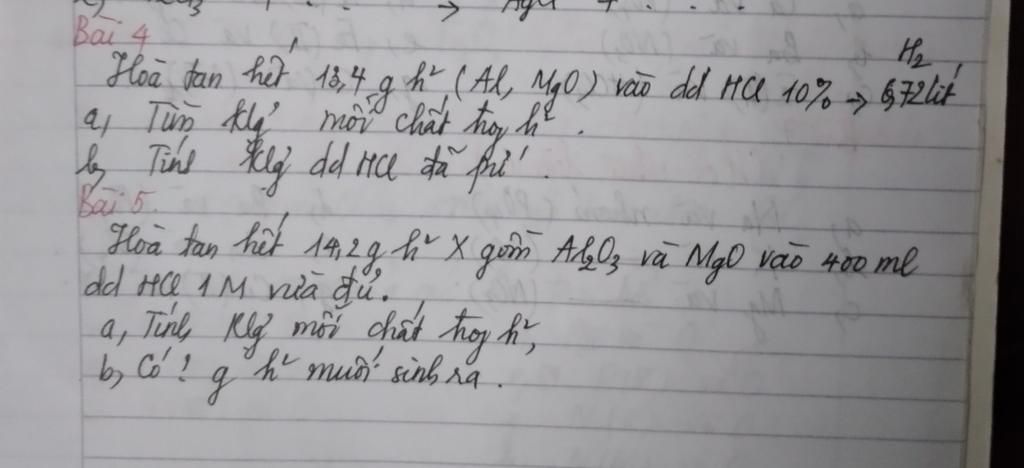 → AgCl + . . .
Bài 4
H₂
Hoà tan hết 13,4 g h² (Al, MgO) vào dd HCl 10% → 6,72 lít
a, Tính klg mỗi chất trog h².
b, Tính klg dd HCl đã pứ.
Bài 5.
Hoà tan hết 14,2g h² X gồm Al₂O₃ và MgO vào 400 ml
dd HCl 1M vừa đủ.
a, Tính klg mỗi chất trog h²,
b, Có ? g h² muối sinh ra.